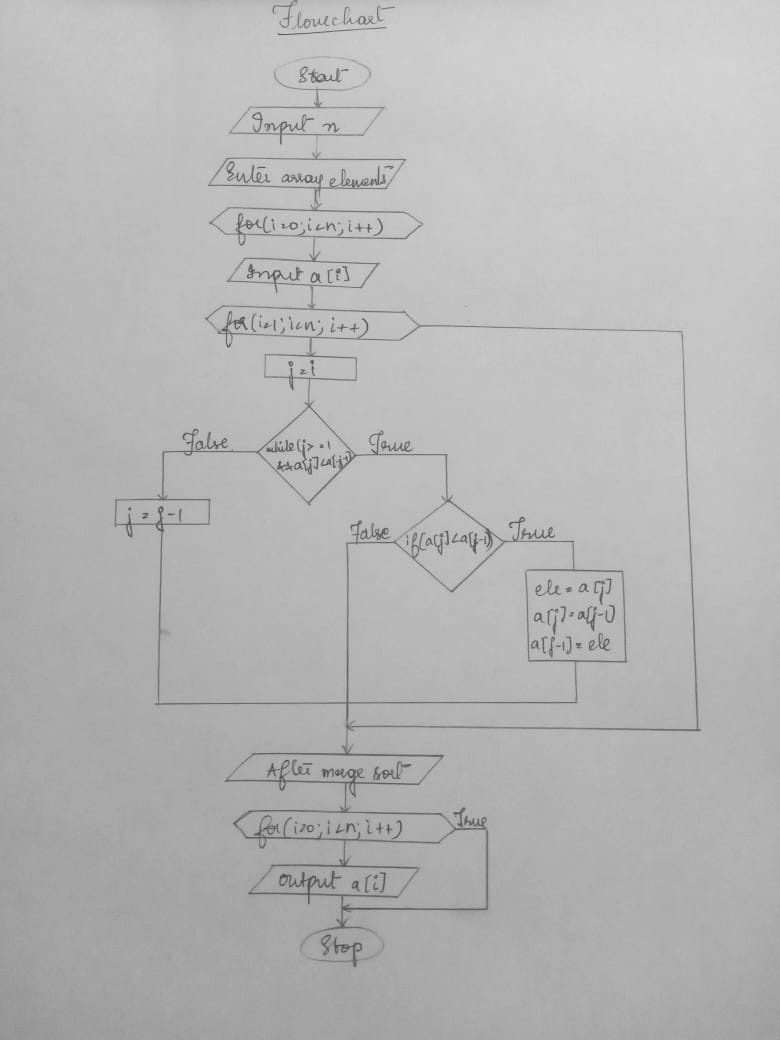 Flowchart
Start
Input n
Enter array elements
for(i=0;i<n;i++)
Input a[i]
for(i=1;i<n;i++)
j=i
False
while(j>=1
&&a[j]<a[j-1])
True
j=j-1
False
if(a[j]<a[j-1])
True
ele=a[j]
a[j]=a[j-1]
a[j-1]=ele
After merge sort
for(i=0;i<n;i++)
True
output a[i]
Stop